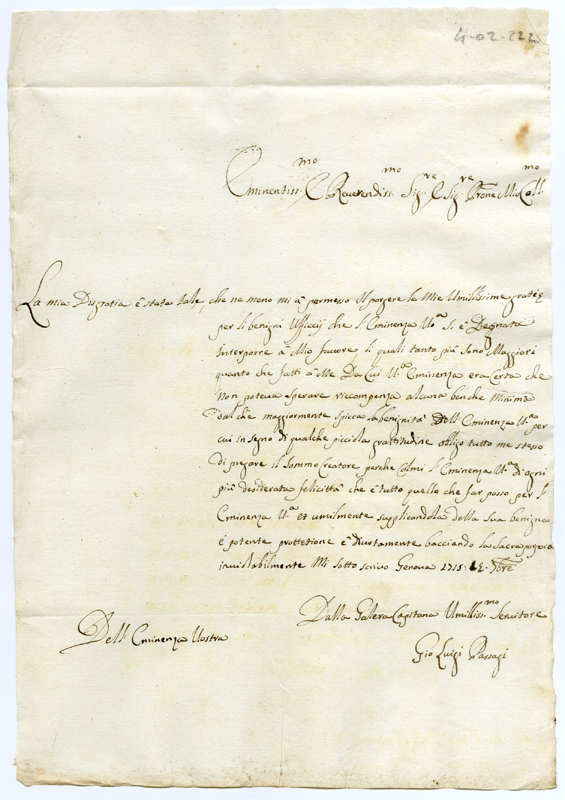 4-02-222
Eminentiss.mo E Reverendiss.mo Sig.re E Sig.re Prone Mio Coll.mo
La mia Disgratia é stata tale, che ne meno mi á permesso il porgere le Mie Umilissime gratie
per li benigni Ufficij che l'Eminenza Vo.a Si é Degnata
Interporre á Mio favore, li quali tanto piú Sono Maggiori
quanto che fatti á Me Da Cui V.a Eminenza era Certa che
Non poteva Sperare riccompenza alcuna ben che Minima
dal che maggiormente spicca la benignitá Dell'Eminenza V.a per
cui in segno di qualche picciola gratitudine obligo tutto me stesso
di pregare il Sommo Creatore perche Colmi l'Eminenza V.a di ogni
piú desiderata felicittá che é tutto quello che far posso per l'
Eminenza V.a et umilmente supplicandola della sua benigna
é potente prottetione é divotamente bacciando la sacra porpora
inviolabilmente Mi sotto scrivo Genova 1715:
Dalla Galera Capitana Umiliss.mo Servitore
Dell'Eminenza Vostra
Gio Luigi Passagi